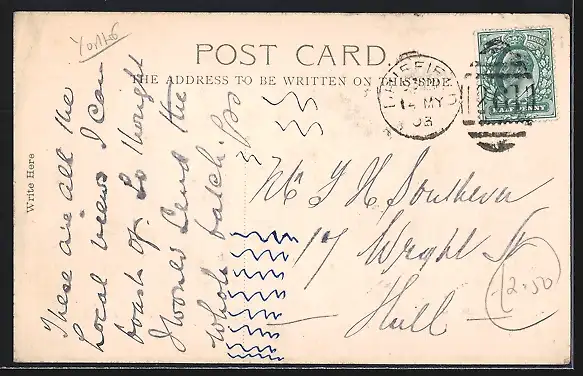 Yorks
POST CARD.
THE ADDRESS TO BE WRITTEN ON THIS SIDE
Write Here
These are all the
Local views I can
boast of. So thought
I would send the
whole batch.
14 MY
03
HALFPENNY
Southern
17 Wright St
Hull
2.50